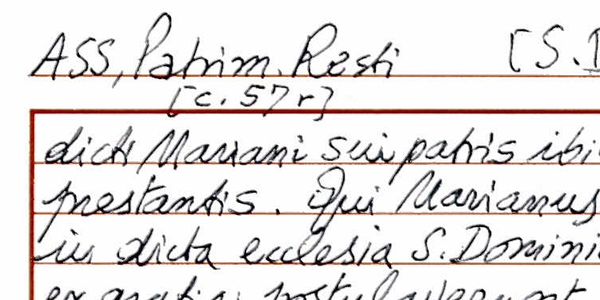 ASS, Patrim. Resti [S.
[c. 57r]
dicti Mariani sui patris ibi
prestantis. Qui Marianus
in dicta ecclesia S. Domini
ex gratia postulaverunt